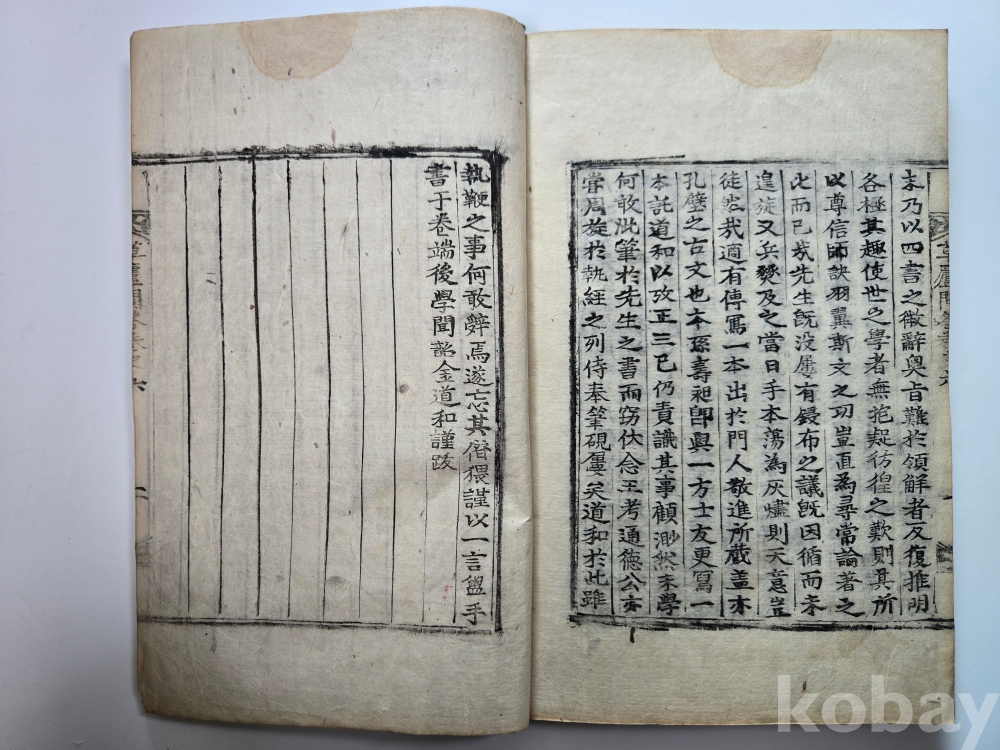 末乃以四書之微辭奧旨難於領解者反復推明
各極其趣使世之學者無抱疑彷徨之歎則其所
以尊信師訣羽翼斯文之功豈直為尋常論著之
比而已哉先生旣没屢有鋟布之議旣因循而未
遑旋又兵燹及之當日手本蕩為灰燼則天意豈
徒然哉適有傳寫一本出於門人敬進所蔵盖亦
孔壁之古文也本孫壽昶卽與一方士友更寫一
本託道和以攷正三已仍責識其事顧渺然末學
何敢泚筆於先生之書而窃伏念王考通德公亦
甞周旋於執経之列侍奉筆硯屢矣道和於此雖
執鞭之事何敢辭焉遂忘其僭猥謹以一言盥手
書于卷端後學聞韶金道和謹跋
草廬問答卷之六
kobay